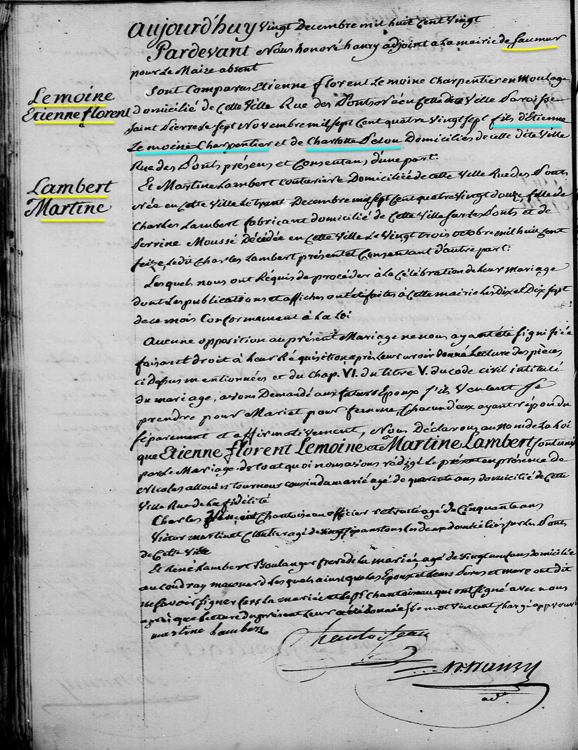 aujourd'huy vingt Decembre mil huit cent vingt
Pardevant Nous honoré hanry adjoint a la mairie de Saumur
pour Le Maire absent
Sont Comparus Etienne florent Le moine Charpentier en Moulage
Lemoine
Etienne florent
domicilié de Cette Ville Rue des Ponts née en Cette ditte Ville Paroisse
Saint Pierre le Sept Novembre mil sept Cent quatre vingt sept fils d'Etienne
Le moine Charpentier et de Charlotte Domiciliés de celle dite Ville
Rue des Ponts présens et Consentans d'une part.
Lambert
Martine
Et Martine Lambert Couturiere Domiciliée de cette Ville Rue des Ponts
née en Cette Ville Le trente Decembre mil sept Cent quatre vingt douze, fille de
Charles Lambert fabricant domicilié de Cette Ville sur les Ponts et de
Perrine Moussé Décédée en Cette Ville Le Vingt trois octobre mil huit cent
seize, Ledit Charles Lambert présent et Consentant d'autre part.
Lesquels nous ont Réquis de procéder à la Célébration de Leur mariage
dont Les publications et affiches ont été faites à Cette mairie Les Dix et Dix sept
de ce mois Conformement à la Loi
Aucune opposition au présent Mariage ne nous ayant été signifiée
faisant droit à Leur Réquisition après Leur avoir donné Lecture des pièces
ci dessus mentionnées et du Chap. VI. du titre V. du Code civil intitulé
du mariage, avons Demandé aux futurs Epoux s'ils Veulent se
prendre pour Mari et pour femme, Chacun d'eux ayant répondu
séparement et affirmativement, Nous Déclarons au nom de La Loi
que Etienne florent Lemoine et Martine Lambert sont unis
par Le Mariage de tout quoi nous avons rédigé Le présent en présence de
Nicolas tourneur cousin du marié agé de quarante ans domicilié de Cette
Ville Rue de la fidélité
Charles Chantoiseau officier retraité agé de Cinquante ans
Victor martinet agé de vingt sept ans tous les deux domiciliés sur les Ponts
de Cette Ville
Et René Lambert Boulanger frere de la mariée, agé de vingt ans domicilié
au Coudray macouard Lesquels ainsi que les Epoux et Leurs Peres et mere ont dit
ne savoir signer fors la mariée et le Sr Chantoiseau qui ont signé avec nous
après que lecture du présent Leur a été donnée. Le mot approuvé
martine lambert
Chantoiseau
h hanry
adt